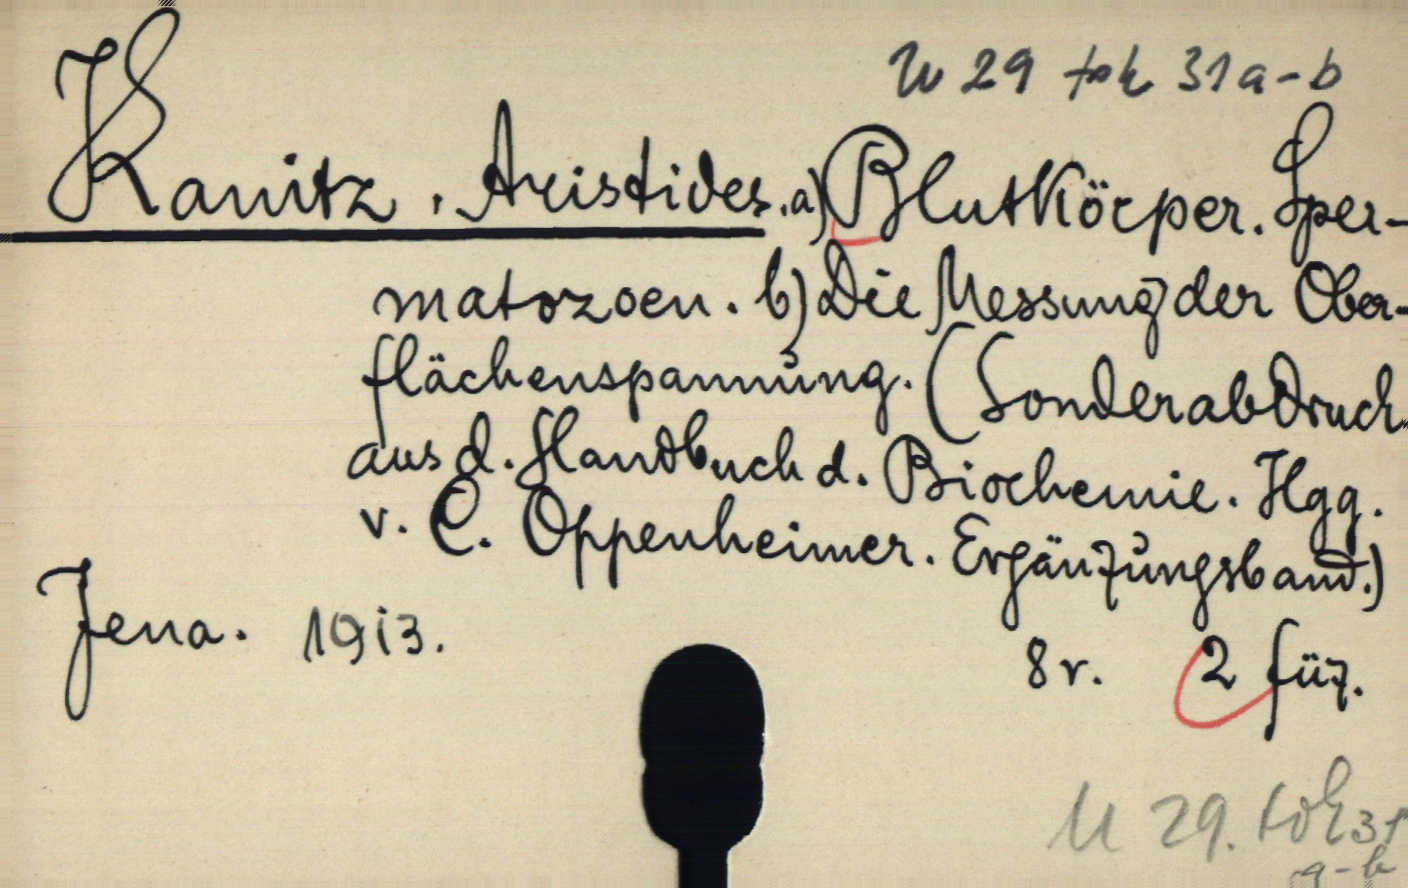 U 29 tok 31 a-b
Kanitz, Aristides. a) Blutkörper. Sper-
matozoen. b) Die Messung der Ober-
flächenspannung. (Sonderabdruck
aus d. Handbuch d. Biochemie. Hgg.
v. C. Oppenheimer. Ergänzungsband.)
Jena. 1913. 8r. 2 füz.
U 29. tok 31
a-b